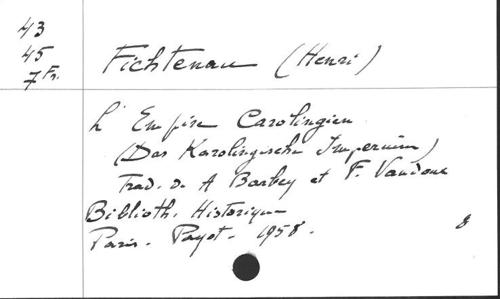 43
45
7 Fr.
Fichtenau (Henri)
L'Empire Carolingien
(Das Karolingische Imperium)
Trad. de A Barbey et F. Vaudou
Biblioth. Historique
Paris. Payot. 1958.
8